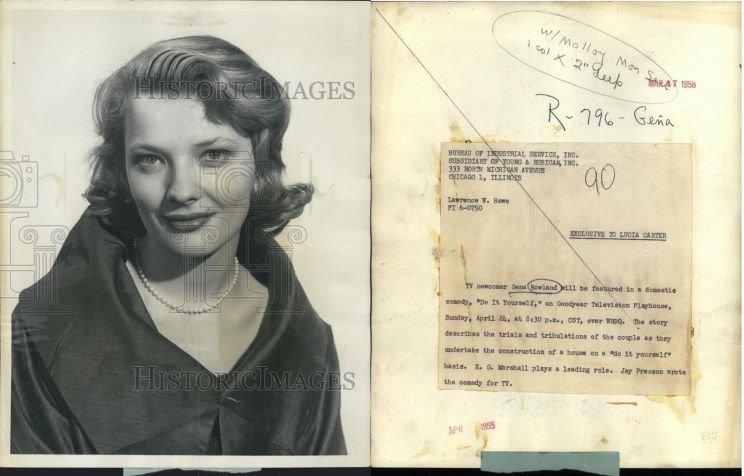 HISTORIC IMAGES
HISTORIC IMAGES
w/Molloy Mon
1 col X 2" deep
MAR 17 1958
R-796-Gena
BUREAU OF INDUSTRIAL SERVICE, INC.
SUBSIDIARY OF YOUNG & RUBICAM, INC.
333 NORTH MICHIGAN AVENUE
CHICAGO 1, ILLINOIS
90
Lawrence W. Howe
FI 6-0750
EXCLUSIVE TO LUCIA CARTER
TV newcomer Gena Rowland will be featured in a domestic
comedy, "Do It Yourself," on Goodyear Television Playhouse,
Sunday, April 24, at 8:30 p.m., CST, over WNBQ. The story
describes the trials and tribulations of the couple as they
undertake the construction of a house on a "do it yourself"
basis. E. G. Marshall plays a leading role. Jay Presson wrote
the comedy for TV.
HISTORIC IMAGES
HISTORIC IMAGES
APR 1955